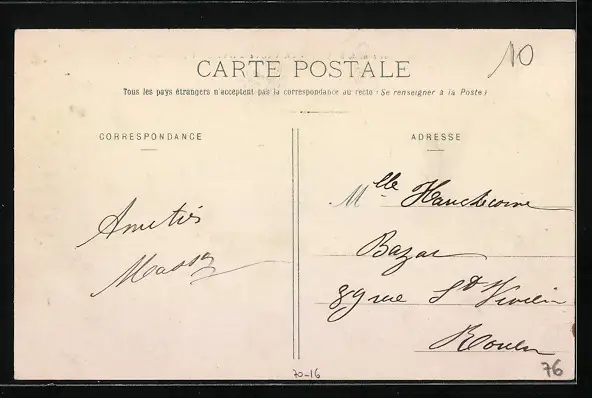 10
CARTE POSTALE
Tous les pays étrangers n'acceptent pas la correspondance au recto (Se renseigner à la Poste)
CORRESPONDANCE
Amitiés
ADRESSE
Mlle Hauchecorne
Bazar
89 rue St Vivien
Rouen
70-16
76